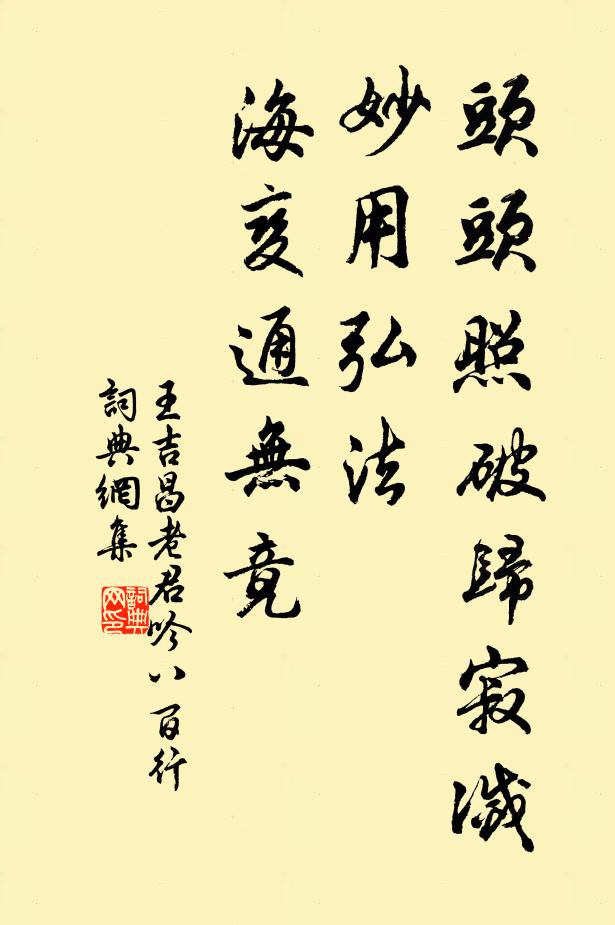 頭頭照破歸寂滅
妙用弘法
海变通無竟
王吉昌老君吟八百行
詞典網集
詞典
网印